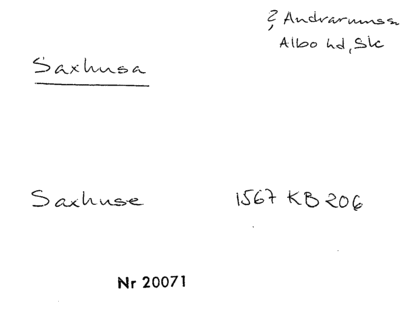 ?, Andrarums sn
Albo hd, Sk
Saxhusa
Saxhuse 1567 KB 206
Nr 20071